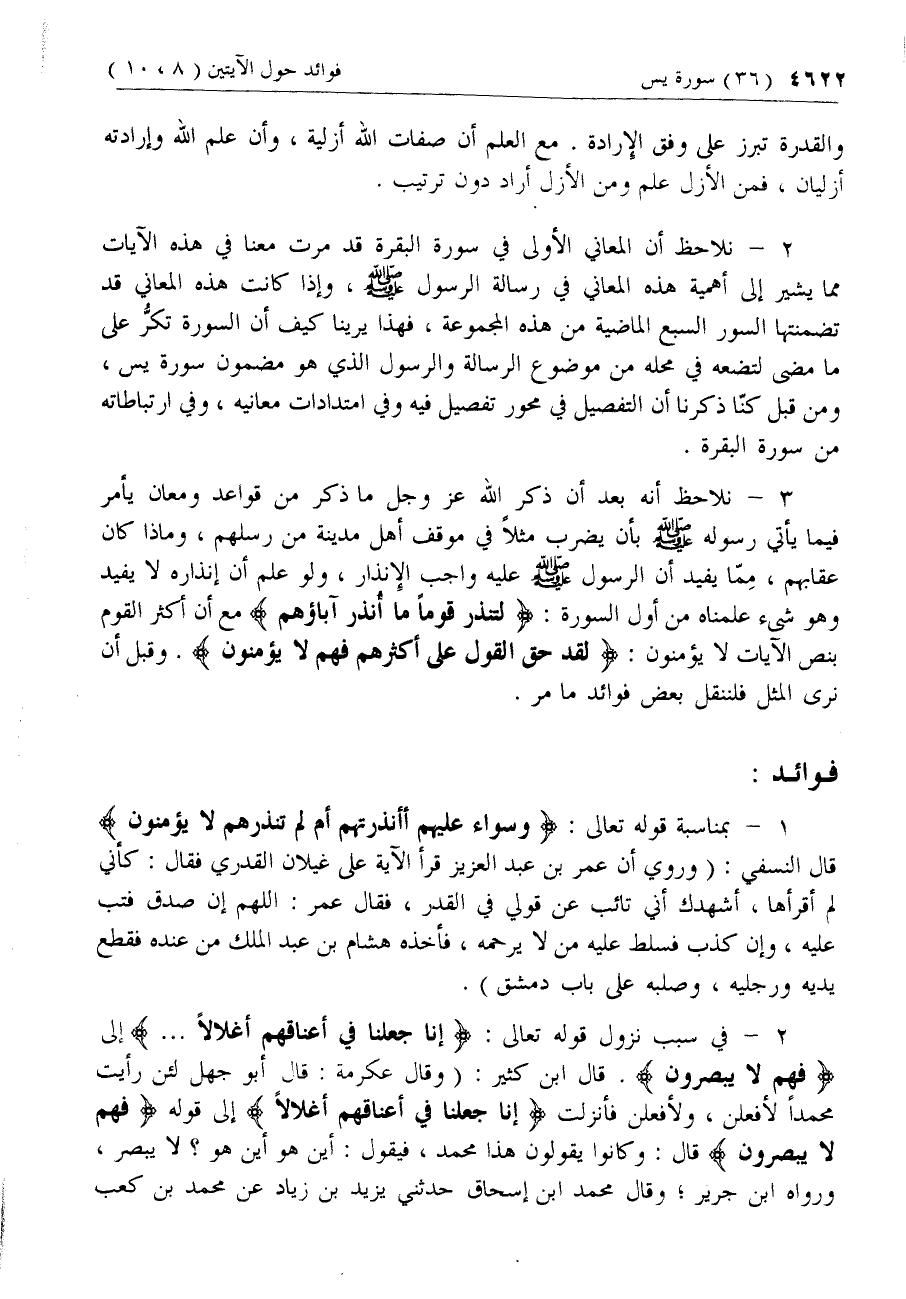 ٤٦٢٢ (٣٦) سورة يس فوائد حول الآيتين ( ٨ ، ١٠ )
والقدرة تبرز على وفق الإرادة . مع العلم أن صفات الله أزلية ، وأن علم الله وإرادته
أزليان ، فمن الأزل علم ومن الأزل أراد دون ترتيب .
٢ – نلاحظ أن المعاني الأولى في سورة البقرة قد مرت معنا في هذه الآيات
مما يشير إلى أهمية هذه المعاني في رسالة الرسول ﷺ ، وإذا كانت هذه المعاني قد
تضمنتها السور السبع الماضية من هذه المجموعة ، فهذا يرينا كيف أن السورة تكرُّ على
ما مضى لتضعه في محله من موضوع الرسالة والرسول الذي هو مضمون سورة يس ،
ومن قبل كنّا ذكرنا أن التفصيل في محور تفصيل فيه وفي امتدادات معانيه ، وفي ارتباطاته
من سورة البقرة .
٣ – نلاحظ أنه بعد أن ذكر الله عز وجل ما ذكر من قواعد ومعان يأمر
فيما يأتي رسوله ﷺ بأن يضرب مثلاً في موقف أهل مدينة من رسلهم ، وماذا كان
عقابهم ، مِمّا يفيد أن الرسول ﷺ عليه واجب الإنذار ، ولو علم أن إنذاره لا يفيد
وهو شيء علمناه من أول السورة : ﴿ لتنذر قوماً ما أُنذر آباؤهم ﴾ مع أن أكثر القوم
بنص الآيات لا يؤمنون : ﴿ لقد حق القول على أكثرهم فهم لا يؤمنون ﴾ . وقبل أن
نرى المثل فلننقل بعض فوائد ما مر .
فوائد :
١ – بمناسبة قوله تعالى : ﴿ وسواء عليهم أأنذرتهم أم لم تنذرهم لا يؤمنون ﴾
قال النسفي : ( وروي أن عمر بن عبد العزيز قرأ الآية على غيلان القدري فقال : كأني
لم أقرأها ، أشهدك أني تائب عن قولي في القدر ، فقال عمر : اللهم إن صدق فتب
عليه ، وإن كذب فسلط عليه من لا يرحمه ، فأخذه هشام بن عبد الملك من عنده فقطع
يديه ورجليه ، وصلبه على باب دمشق ) .
٢ – في سبب نزول قوله تعالى : ﴿ إنا جعلنا في أعناقهم أغلالاً ... ﴾ إلى
﴿ فهم لا يبصرون ﴾ . قال ابن كثير : ( وقال عكرمة : قال أبو جهل لئن رأيت
محمداً لأفعلن ، ولأفعلن فأنزلت ﴿ إنا جعلنا في أعناقهم أغلالاً ﴾ إلى قوله ﴿ فهم
لا يبصرون ﴾ قال : وكانوا يقولون هذا محمد ، فيقول : أين هو أين هو ؟ لا يبصر ،
ورواه ابن جرير ؛ وقال محمد ابن إسحاق حدثني يزيد بن زياد عن محمد بن كعب